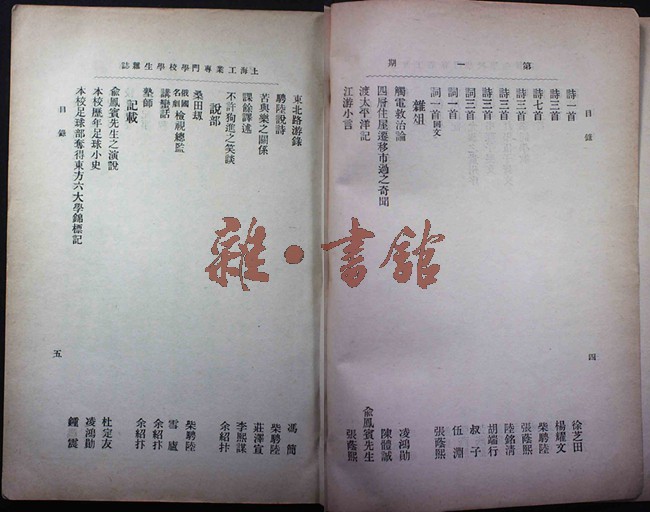 第一期
目錄 四
詩一首 徐芝田
詩三首 楊耀文
詩七首 柴聘陸
詩三首 張蔭熙
詩三首 陸銘清
詩三首 胡端行
詞三首 叔子
詞一首 伍淵
詞一首 張蔭熙
雜俎
觸電救治論 凌鴻勛
四層住屋遷移市過之奇聞 陳體誠
渡太平洋記 俞鳳賓先生
江游小言 張蔭熙
上海工業專門學校學生雜誌
東北路游錄 馮簡
聘陸說詩 柴聘陸
苦與樂之關係 莊澤宣
課餘譯述 李熙謀
不許狗進之笑談 余紹抃
說部
桑田刼 柴聘陸
俄國名劇 檢視總監 雪廬
講蠻話 余紹抃
塾師 余紹抃
記載
俞鳳賓先生之演說 杜定友
本校歷年足球小史 凌鴻勛
本校足球部奪得東方六大學錦標記 鍾震
目錄 五
雜·書館